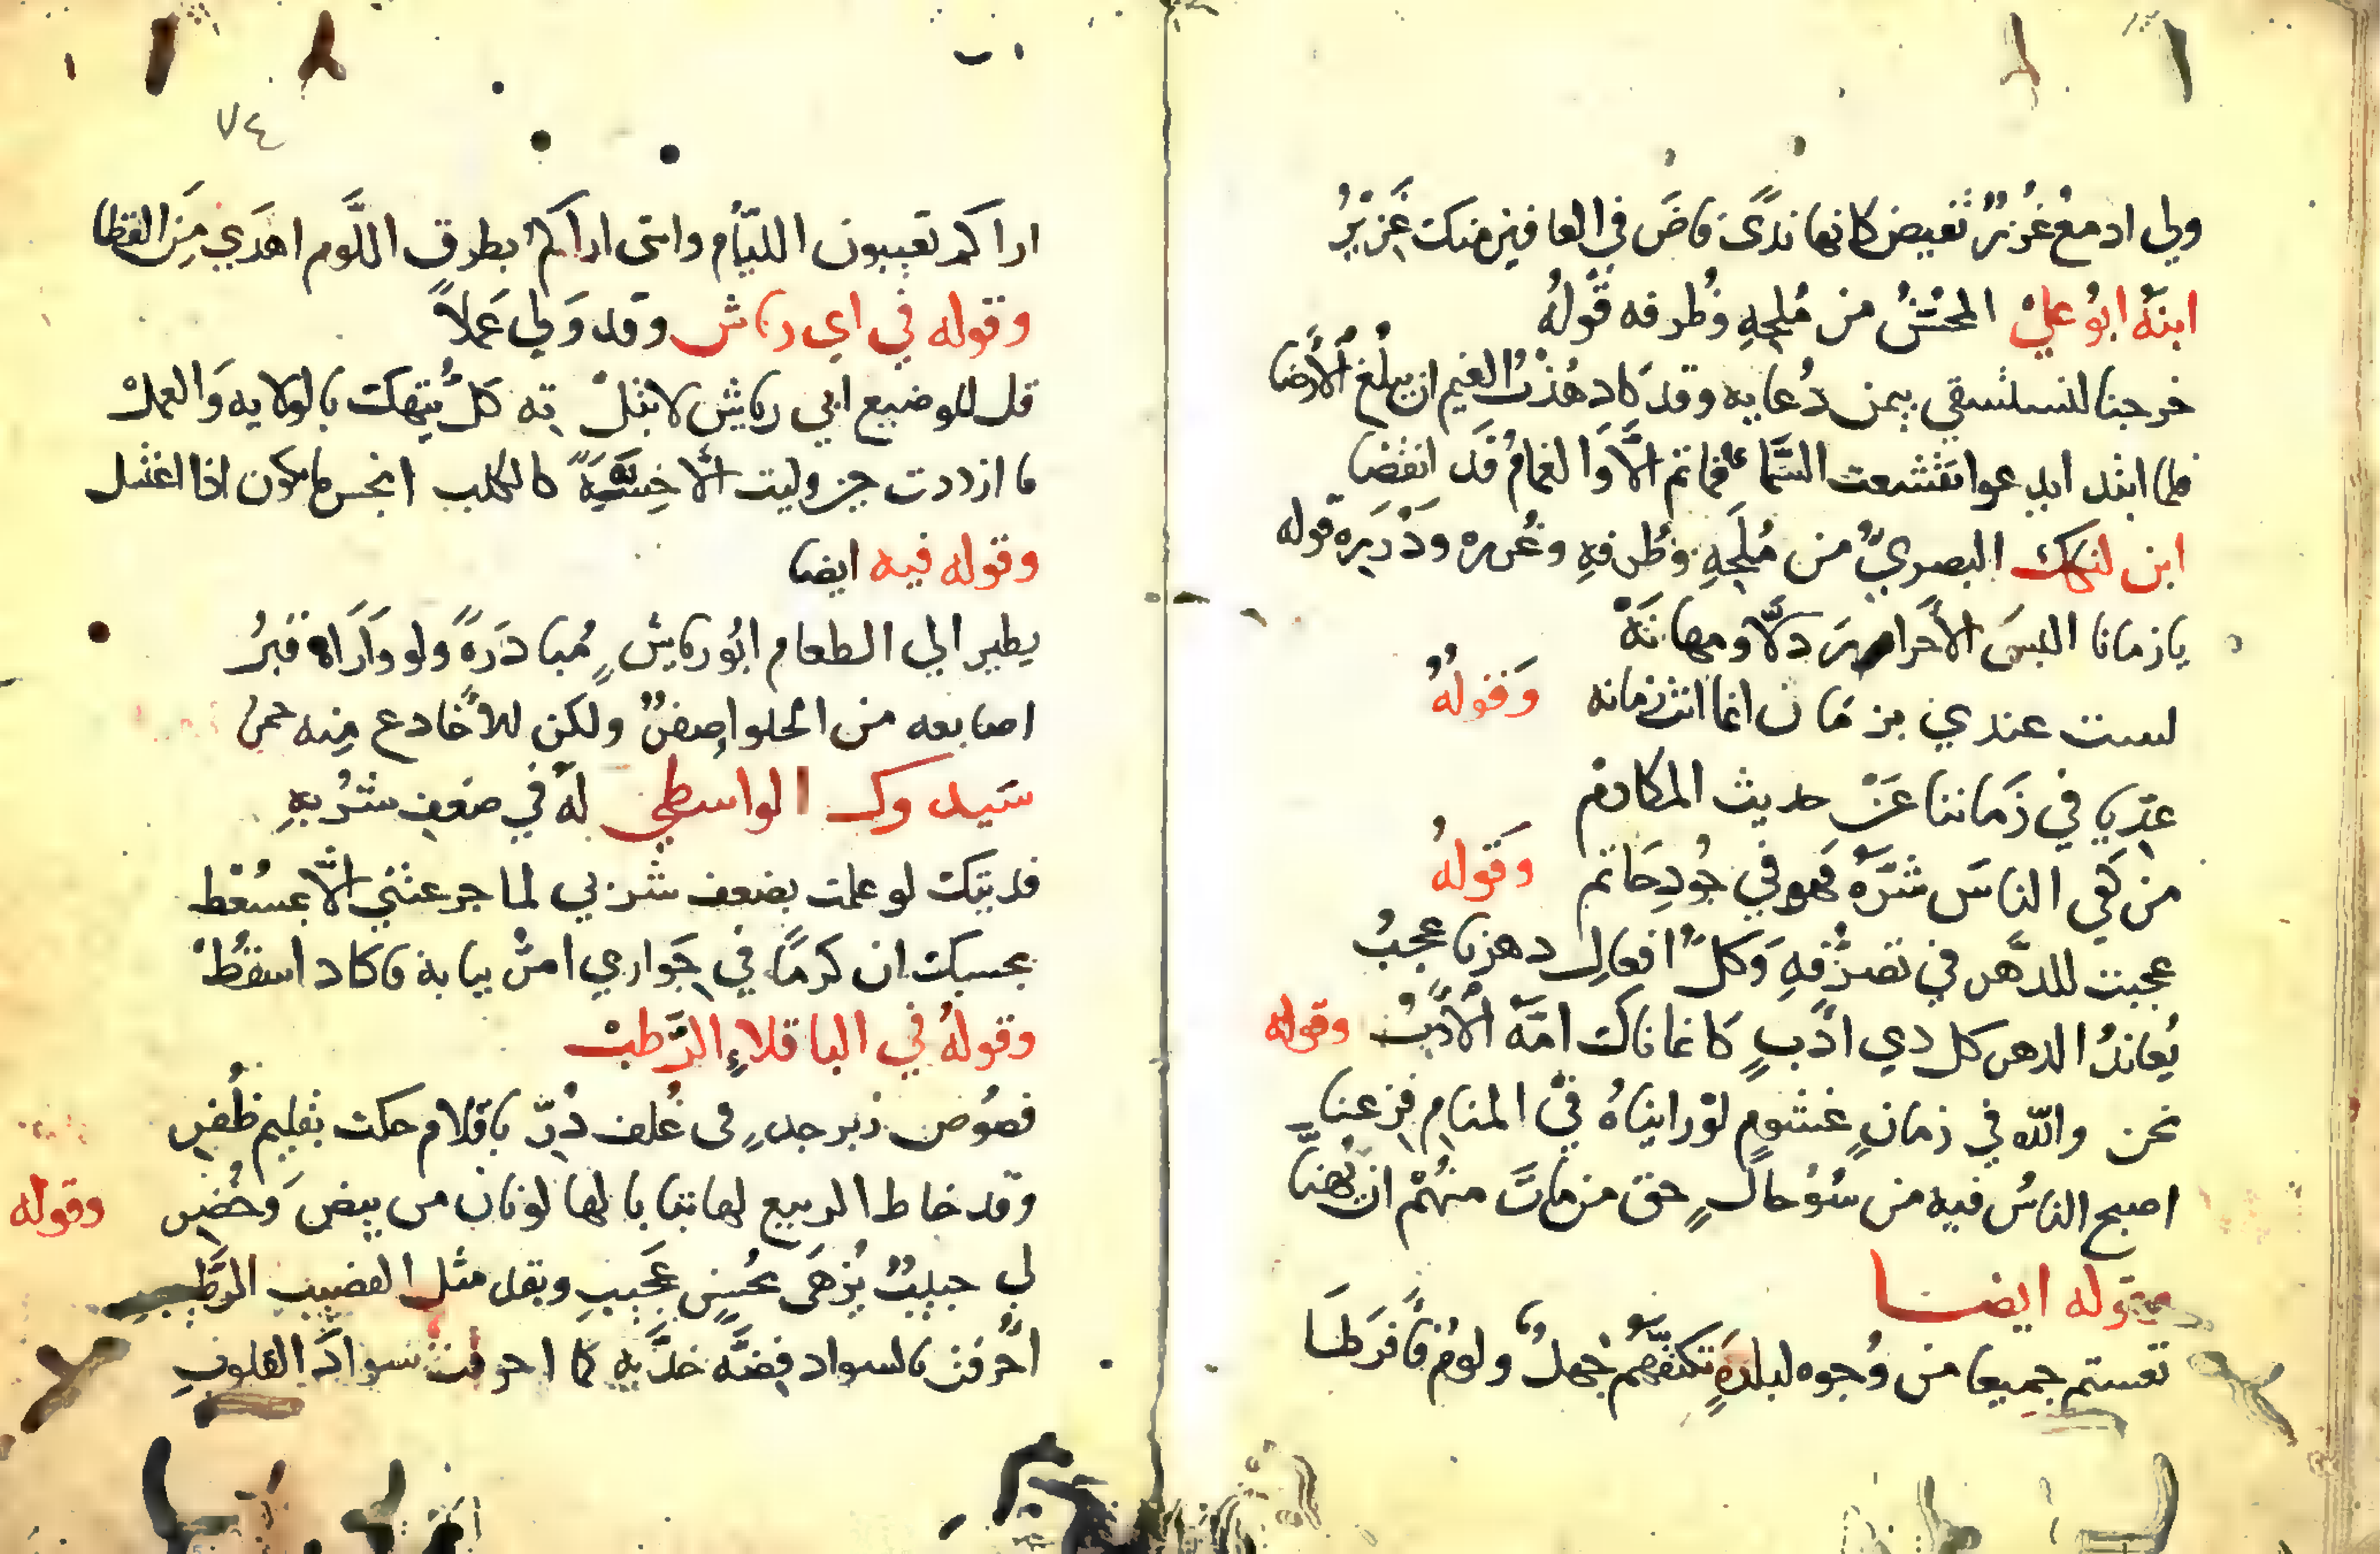 ولي ادمع غزر تفيض كانها ندى فاض في العافين منك غزير
ابنه ابو علي المحسن من ملحه وظرفه قوله
خرجنا لنستسقي بيمن دعايه وقد كاد هذب الغيم ان يبلغ الأرضا
فلما ابتدا يدعوا تقشعت السما فما تم الا والغمام قد انفضا
ابن لنكك البصري من ملحه وظرفه وغرره ودرره قوله
يا زمانا البس الأحرار ذلا ومهانه
لست عندي بزمان انما انت زمانه وقوله
عديا في زماننا عن حديث المكارم
من كفي الناس شره فهو في جود حاتم وقوله
عجبت للدهر في تصرفه وكل افعال دهرنا عجب
يعاند الدهر كل ذي ادب كانما ناك امه الأدب وقوله
نحن والله في زمان غشوم لو رايناه في المنام فزعنا
اصبح الناس فيه من سوء حال حق من مات منهم ان يهنا
وقوله ايضا
تعستم جميعا من وجوه لبلدة تكنفهم جهل ولوم فافرطا
٧٤
اراكم تعيبون اللئام وانى اراكم بطرق اللوم اهدي من القطا
وقوله في ابي رياش وقد ولي عملا
قل للوضيع ابي رياش لا تبل ته كل تيهك بالولايه والعمل
ما ازددت حين وليت الا خسة كالكلب انجس ما يكون اذا اغتسل
وقوله فيه ايضا
يطير الي الطعام ابو رياش مبادرة ولو واراه قبر
اصابعه من الحلوا صفر ولكن الأخادع منه حمر
سيدوك الواسطي له في ضعف شربه
فديتك لو علمت بضعف شربي لما جرعتني الا بمسعط
بحسبك ان كرما في جواري امر ببابه فاكاد اسقط
وقوله في الباقلاء الرطب
فصوص زبرجد في غلف در باقلام حكت تقليم ظفر
وقد خاط الربيع لها ثيابا لها لونان من بيض وخضر وقوله
لي حبيب يزهى بحسن عجيب وبقد مثل القضيب الرطيب
احرقت بالسواد فضة خديه كما احرقت سواد القلوب